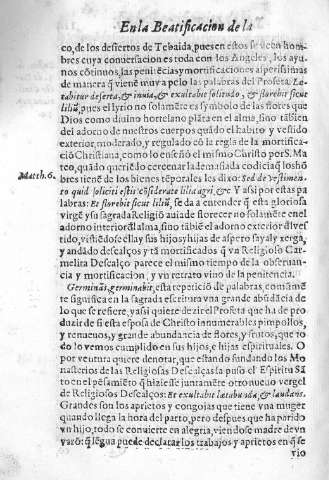 En la Beatificacion de la
co, de los desiertos de Tebaida, pues en estos se veen hom-
bres cuya conuersacion es toda con los Angeles, los ayu-
nos cõtinuos, las penitẽcias y mortificaciones asperissimas
de manera q̃ viene muy a pelo las palabras del Profeta. Læ-
tabitur deserta, & inuia, & exultabit solitudo, & florebit sicut
liliũ, pues el lyrio no solamẽte es symbolo de las flores que
Dios como diuino hortelano plãta en el alma, sino tãbien
del adorno de nuestros cuerpos quãdo el habito y vestido
exterior, moderado, y regulado cõ la regla de la mortifi-
ciõ Christiana, como lo enseñò el mismo Christo por S. Ma
Matth. 6. teo, quãdo queriẽdo cercenar la demasiada codicia q̃ los hõ
bres tienẽ de los bienes tẽporales les dixo: Sed de vestimen-
to quid soliciti estis cõsiderate lilia agri, &c Y assi por estas pa
labras: Et florebit sicut liliũ, se da a entender q̃ esta gloriosa
virgẽ y su sagrada Religiõ auia de florecer no solamẽte en el
adorno interior d̃l alma, sino tãbiẽ en el adorno exterior d̃l ves
tido, vistiẽdose ella y sus hijos y hijas de aspero sayal y xerga,
y andãdo descalços y tã mortificados q̃ vn Religioso Car-
melita Descalço parece el mismo tiempo de la obseruan-
cia y mortificacion, y vn retrato viuo de la penitencia.
Germinãs germinabit, esta repeticiõ de palabras, comũmẽ
te significa en la sagrada escritura vna grande abũdãcia de
lo que se refiere, y assi quiere dezir el Profeta que ha de pro
duzir de si esta esposa de Christo innumerables pimpollos,
y renueuos, y grande abundancia de flores, y frutos, que to
do lo vemos cumplido en sus hijos, e hijas espirituales. O
por ventura quiere denotar, que estando fundando los Mo
nasterios de las Religiosas Descalças la puso el Espiritu Sã
to en el pẽsamiẽto q̃ hiziesse juntamẽte otro nueuo vergel
de Religiosos Descalços: Et exultabit lætabunda & laudans.
Grandes son los aprietos y congojas que tiene vna muger
quando llega la hora del parto, pero despues que ha parido
vn hijo, todo se conuierte en alegria, viendose madre de vn
varõ: q̃ lẽgua puede declarar los trabajos y aprietos en q̃ se
vio